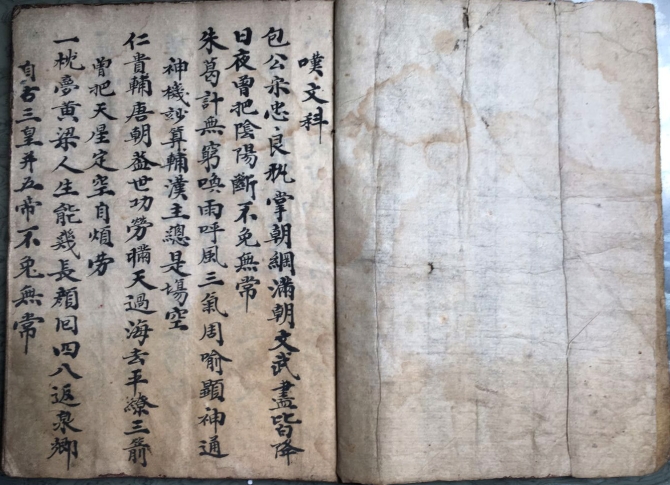 嘆文科
包公宋忠良執掌朝綱滿朝文武盡皆降
日夜曾把陰陽斷不免無常
朱葛計無窮喚雨呼風三氣周喻顯神通
神機妙算輔漢主總是場空
仁貴輔唐朝蓋世功勞瞞天過海去平繚三箭
曾把天星定空自煩劳
一枕夢黄梁人生能幾長顔回四八返泉鄉
自古三皇并五帝不免無常